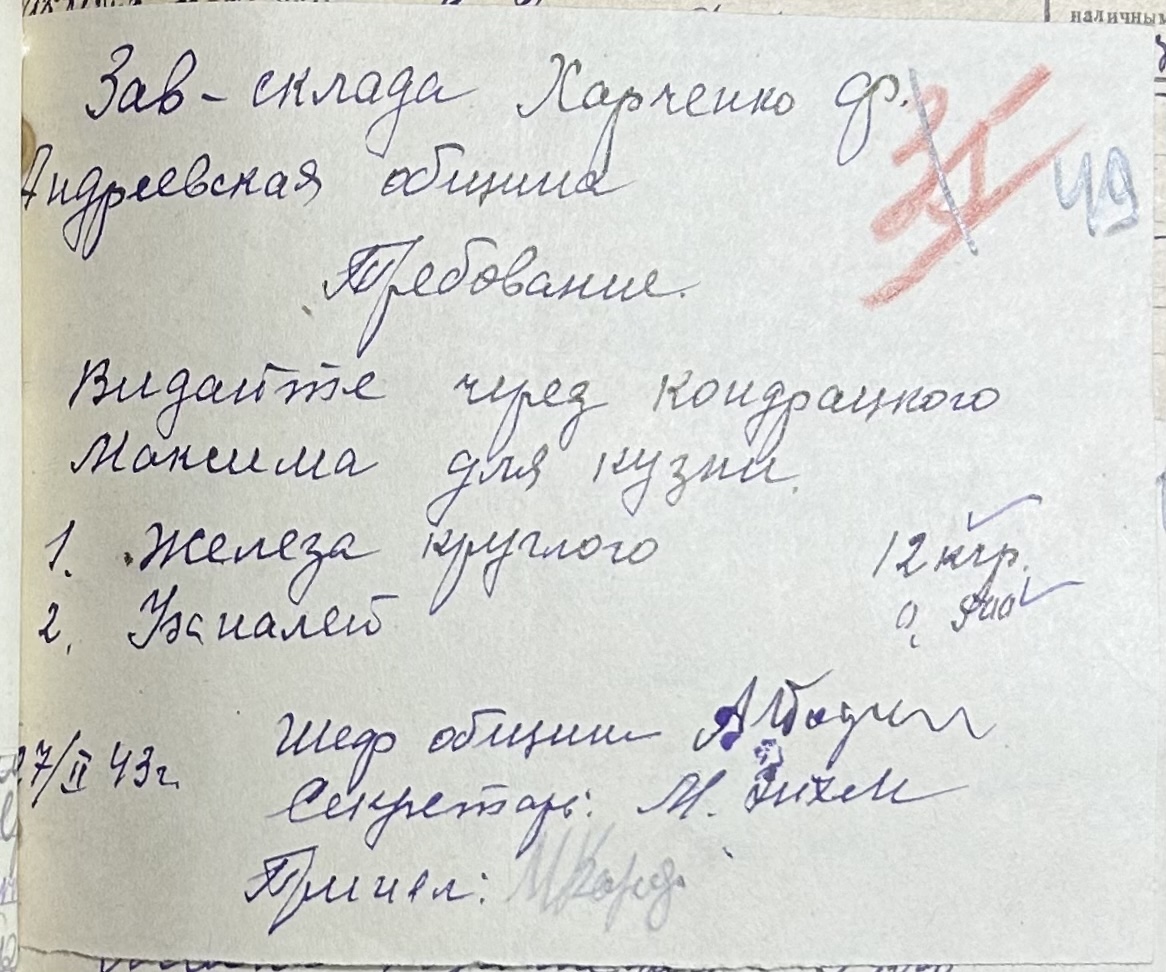 наличным
Зав-склада Харченко Ф.
49
Андреевская община
Требование.
Видайте через Кондрацкого
Максима для кузни.
1. Железа круглого 12 кгр.
2.
Шеф общини
27/II 43г.
Секретарь: М.
Принел: